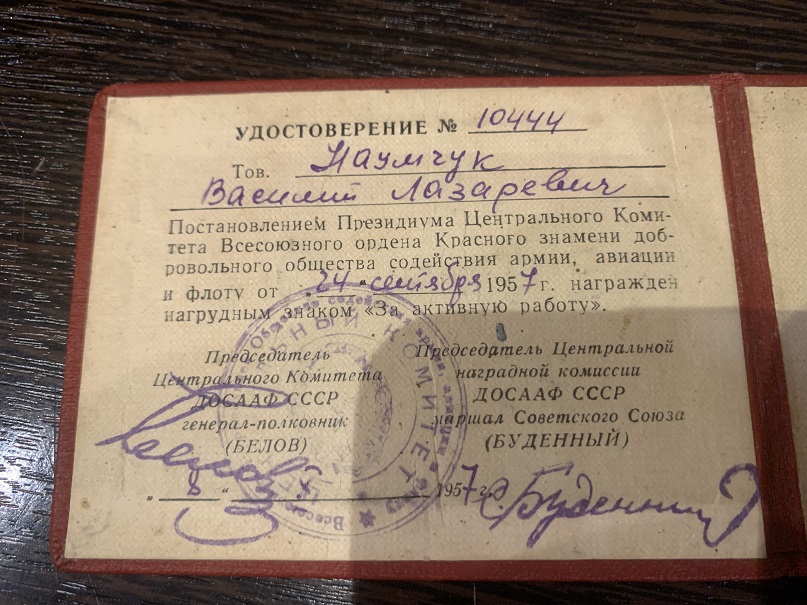 УДОСТОВЕРЕНИЕ № 10444
Тов. Наумчук
Василий Лазаревич
Постановлением Президиума Центрального Коми-
тета Всесоюзного ордена Красного знамени доб-
ровольного общества содействия армии, авиации
и флоту от „24“ сентября 1957 г. награжден
нагрудным знаком «За активную работу».
Председатель
Центрального Комитета
ДОСААФ СССР
генерал-полковник
(БЕЛОВ)
Председатель Центральной
наградной комиссии
ДОСААФ СССР
маршал Советского Союза
(БУДЕННЫЙ)
1957 г.
С. Буденный
КОМИТЕТ